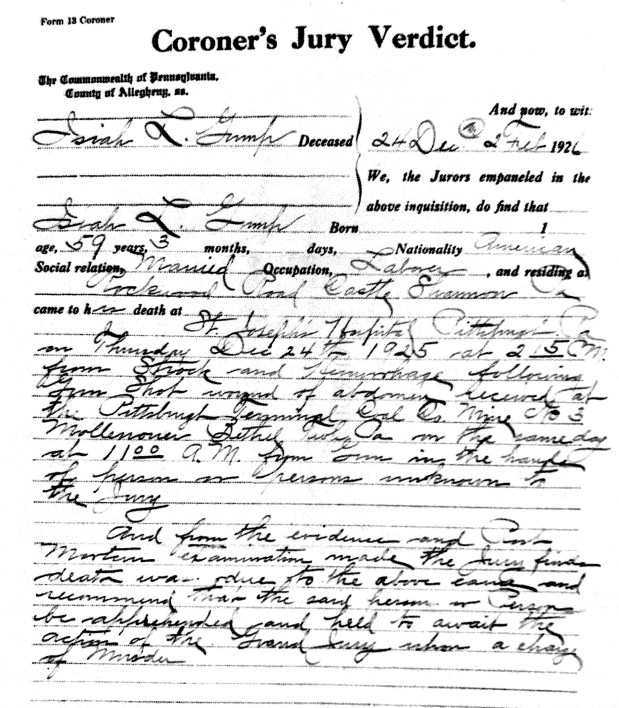 Form 13 Coroner
Coroner's Jury Verdict.
The Commonwealth of Pennsylvania,
County of Allegheny, ss.
And now, to wit:
Isiah L. Gump Deceased 24 Dec 2 Feb 1926
We, the Jurors empaneled in the
above inquisition, do find that
Isiah L. Gump Born 1
age, 59 years, 3 months, days, Nationality American
Social relation, Married Occupation, Laborer, and residing at
Rockwood Road Castle Shannon Pa
came to his death at St. Joseph's Hospital Pittsburgh Pa
on Thursday Dec 24th 1925 at 2 15 P.M.
from Shock and Hemorrhage following
Gun Shot wound of abdomen received at
the Pittsburgh Terminal Coal Co. Mine No 3
Mollenauer Bethel Twp Pa on the same day
at 11 00 A.M. from Gun in the hands
of person or persons unknown to
the Jury
And from the evidence and Post
Mortem examination made the Jury finds
death was due to the above cause and
recommend that the said person or Persons
be apprehended and held to await the
action of the Grand Jury upon a charge
of Murder